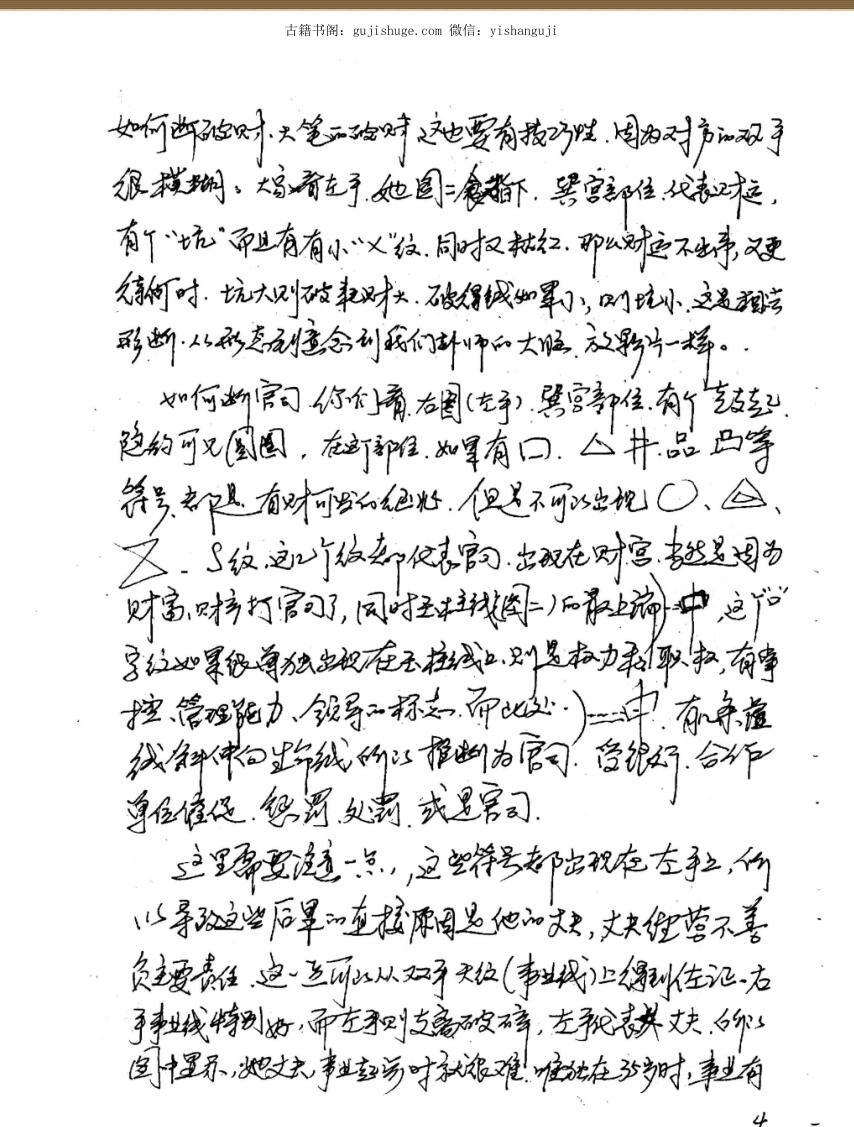 古籍书阁: gujishuge.com 微信: yishanguji
如何断破财.大笔的破财.这也要有技巧性.因为对方的双手
很模糊。大家看左手.她图二食指下.巽宫部位.代表财运,
有个“坑”而且有有小“×”纹.同时又枯红.那么财运不出事,又更
待何时.坑大则破耗财大.破得钱如果小,则坑小.这是
形断.从形态到意念到我们卦师的大脑.放影片一样。
如何断官司.你们看.右图(左手).巽宫部位.有个鼓起.
隐约可见圆圈,在这个部位.如果有口.△井.品凹等
符号.都是有财可发的.但是不可以出现○、△、
Z、S纹.这几个纹都代表官司.出现在财宫.当然是因为
财富、财产打官司了,同时玉柱线(图二)的最上端)=中,这个“中”
字纹如果很单独出现在玉柱线上.则是权力和职权,有掌
控、管理能力、领导的标志.而此处..)===中.有几条
线斜伸向生命线所以推断为官司.受银行.合作
单位催促.惩罚.处罚.或是官司.
这里需要注意一点,这些符号都出现在左手上,所
以导致这些后果的直接原因是他的丈夫,丈夫经营不善
负主要责任.这一点可以从双手天纹(事业线)上得到佐证.右
手事业线特别好,而左手则支离破碎,左手代表其丈夫.所以
图中显示,她丈夫事业起步时就很难.唯独在35岁时,事业有
4